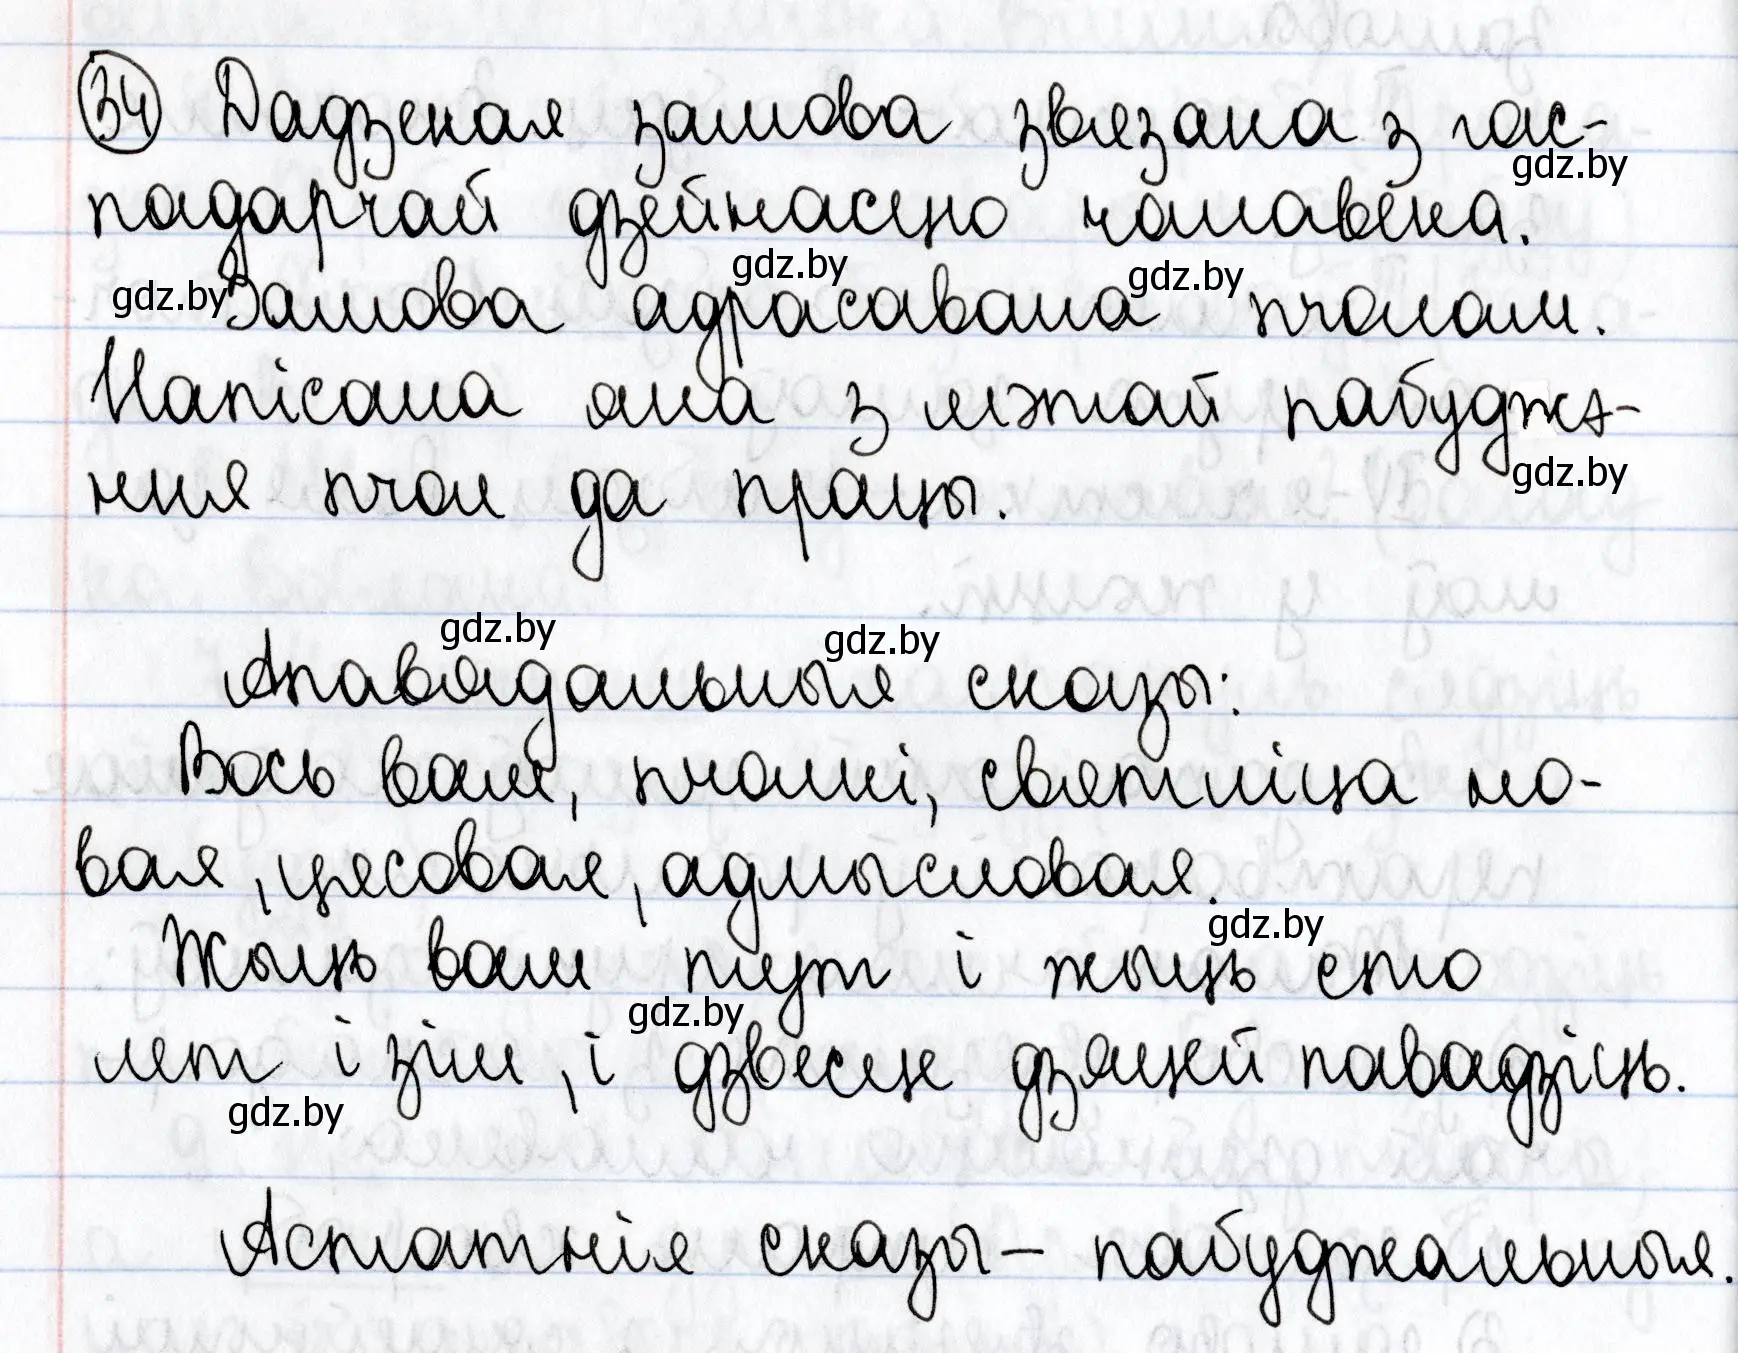 34 Дадзеная замова звязана з гас-
gdz.by
падарчай дзейнасцю чалавека.
gdz.by gdz.by gdz.by
Замова адрасавана пчолам.
Напісана яна з мэтай пабуджэ-
ння пчол да працы.
gdz.by
gdz.by gdz.by
Апавядальныя сказы:
Вось вам, пчолкі, святліца но-
вая, цясовая, адмысловая.
gdz.by
Жыць вам тут і жыць сто
gdz.by
лет і зім, і дзвесце дзяцей павадзіць.
gdz.by
Астатнія сказы – пабуджальныя.